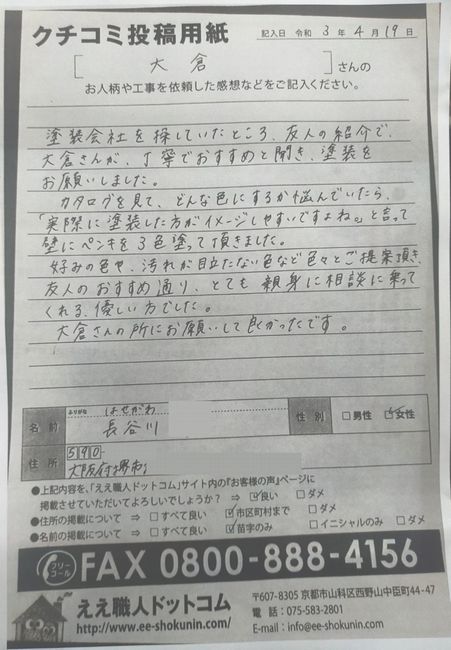 クチコミ投稿用紙
記入日 令和 3 年 4 月 19 日
[ 大倉 ]さんの
お人柄や工事を依頼した感想などをご記入ください。
塗装会社を探していたところ、友人の紹介で、
大倉さんが、丁寧でおすすめと聞き、塗装を
お願いしました。
カタログを見て、どんな色にするか悩んでいたら、
「実際に塗装した方がイメージしやすいですよね。」と言って
壁にペンキを3色塗って頂きました。
好みの色や、汚れが目立たない色など色々とご提案頂き、
友人のおすすめ通り、とても親身に相談に乗って
くれる、優しい方でした。
大倉さんの所にお願いして良かったです。
ふりがな はせがわ
名前 長谷川 性別 □男性 ☑女性
住所 590-
大阪府堺市
●上記内容を、「ええ職人ドットコム」サイト内の『お客様の声』ページに
掲載させていただいてよろしいでしょうか? ⇒ ☑良い □ダメ
●住所の掲載について ⇒ □すべて良い ☑市区町村まで □ダメ
●名前の掲載について ⇒ □すべて良い ☑苗字のみ □イニシャルのみ □ダメ
フリーコール FAX 0800-888-4156
ええ職人ドットコム
http://www.ee-shokunin.com/
〒607-8305 京都市山科区西野山中臣町44-47
電話:075-583-2801
E-mail:info@ee-shokunin.com